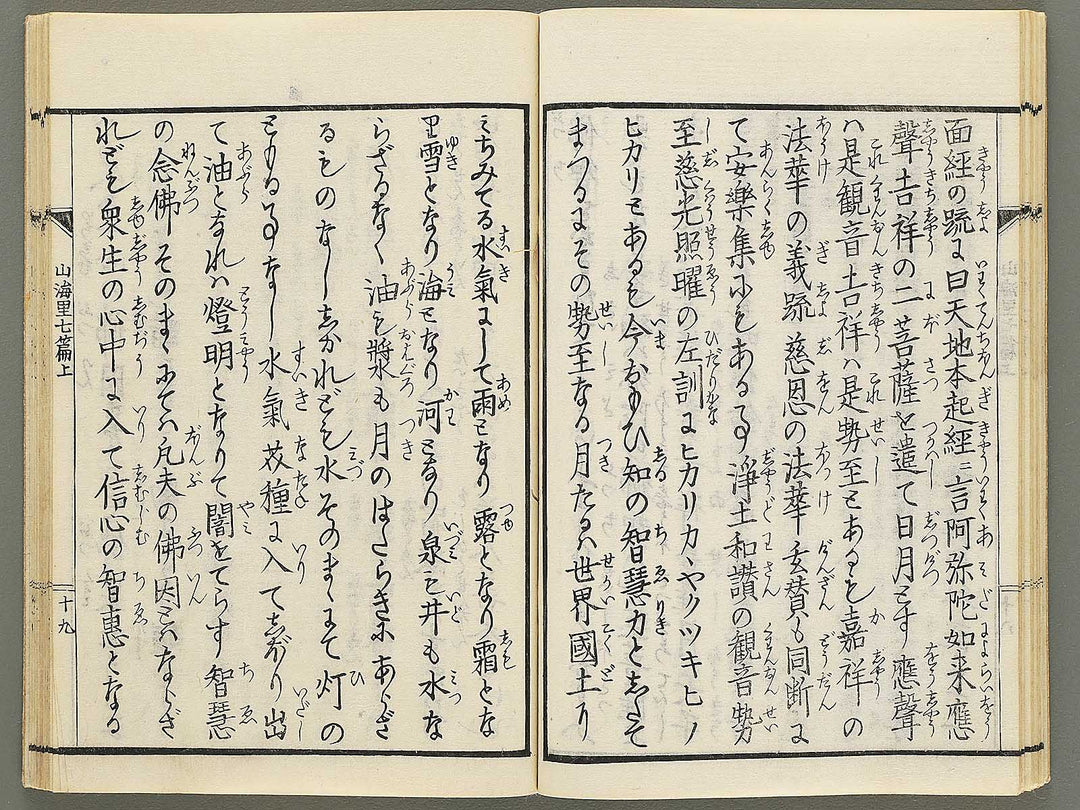 面経の䟽に曰天地本起經ニ言阿弥陀如来應
聲吉祥の二菩薩を遣て日月とす應聲
ハ是観音吉祥ハ是勢至とあるも嘉祥の
法華の義䟽慈恩の法華玄賛も同断に
て安樂集にもある事浄土和讃の観音勢
至慈光照曜の左訓にヒカリカヽヤクツキヒノ
ヒカリとあるも今おもひ知の智慧力としたて
まつるにその勢至なる月たるハ世界國土り
みちみてる水氣にして雨となり露となり霜とな
り雪となり海となり河となり泉も井も水な
らざるなく油も漿も月のはたらきにあらざ
るものなししかれども水そのまゝにて灯の
ともる事なし水氣菜種に入てしぼり出
て油となれハ燈明となりて闇をてらす智慧
の念佛そのまゝにてハ凡夫の佛因とハならざ
れども衆生の心中に入て信心の智惠となる
山海里七篇上
十九